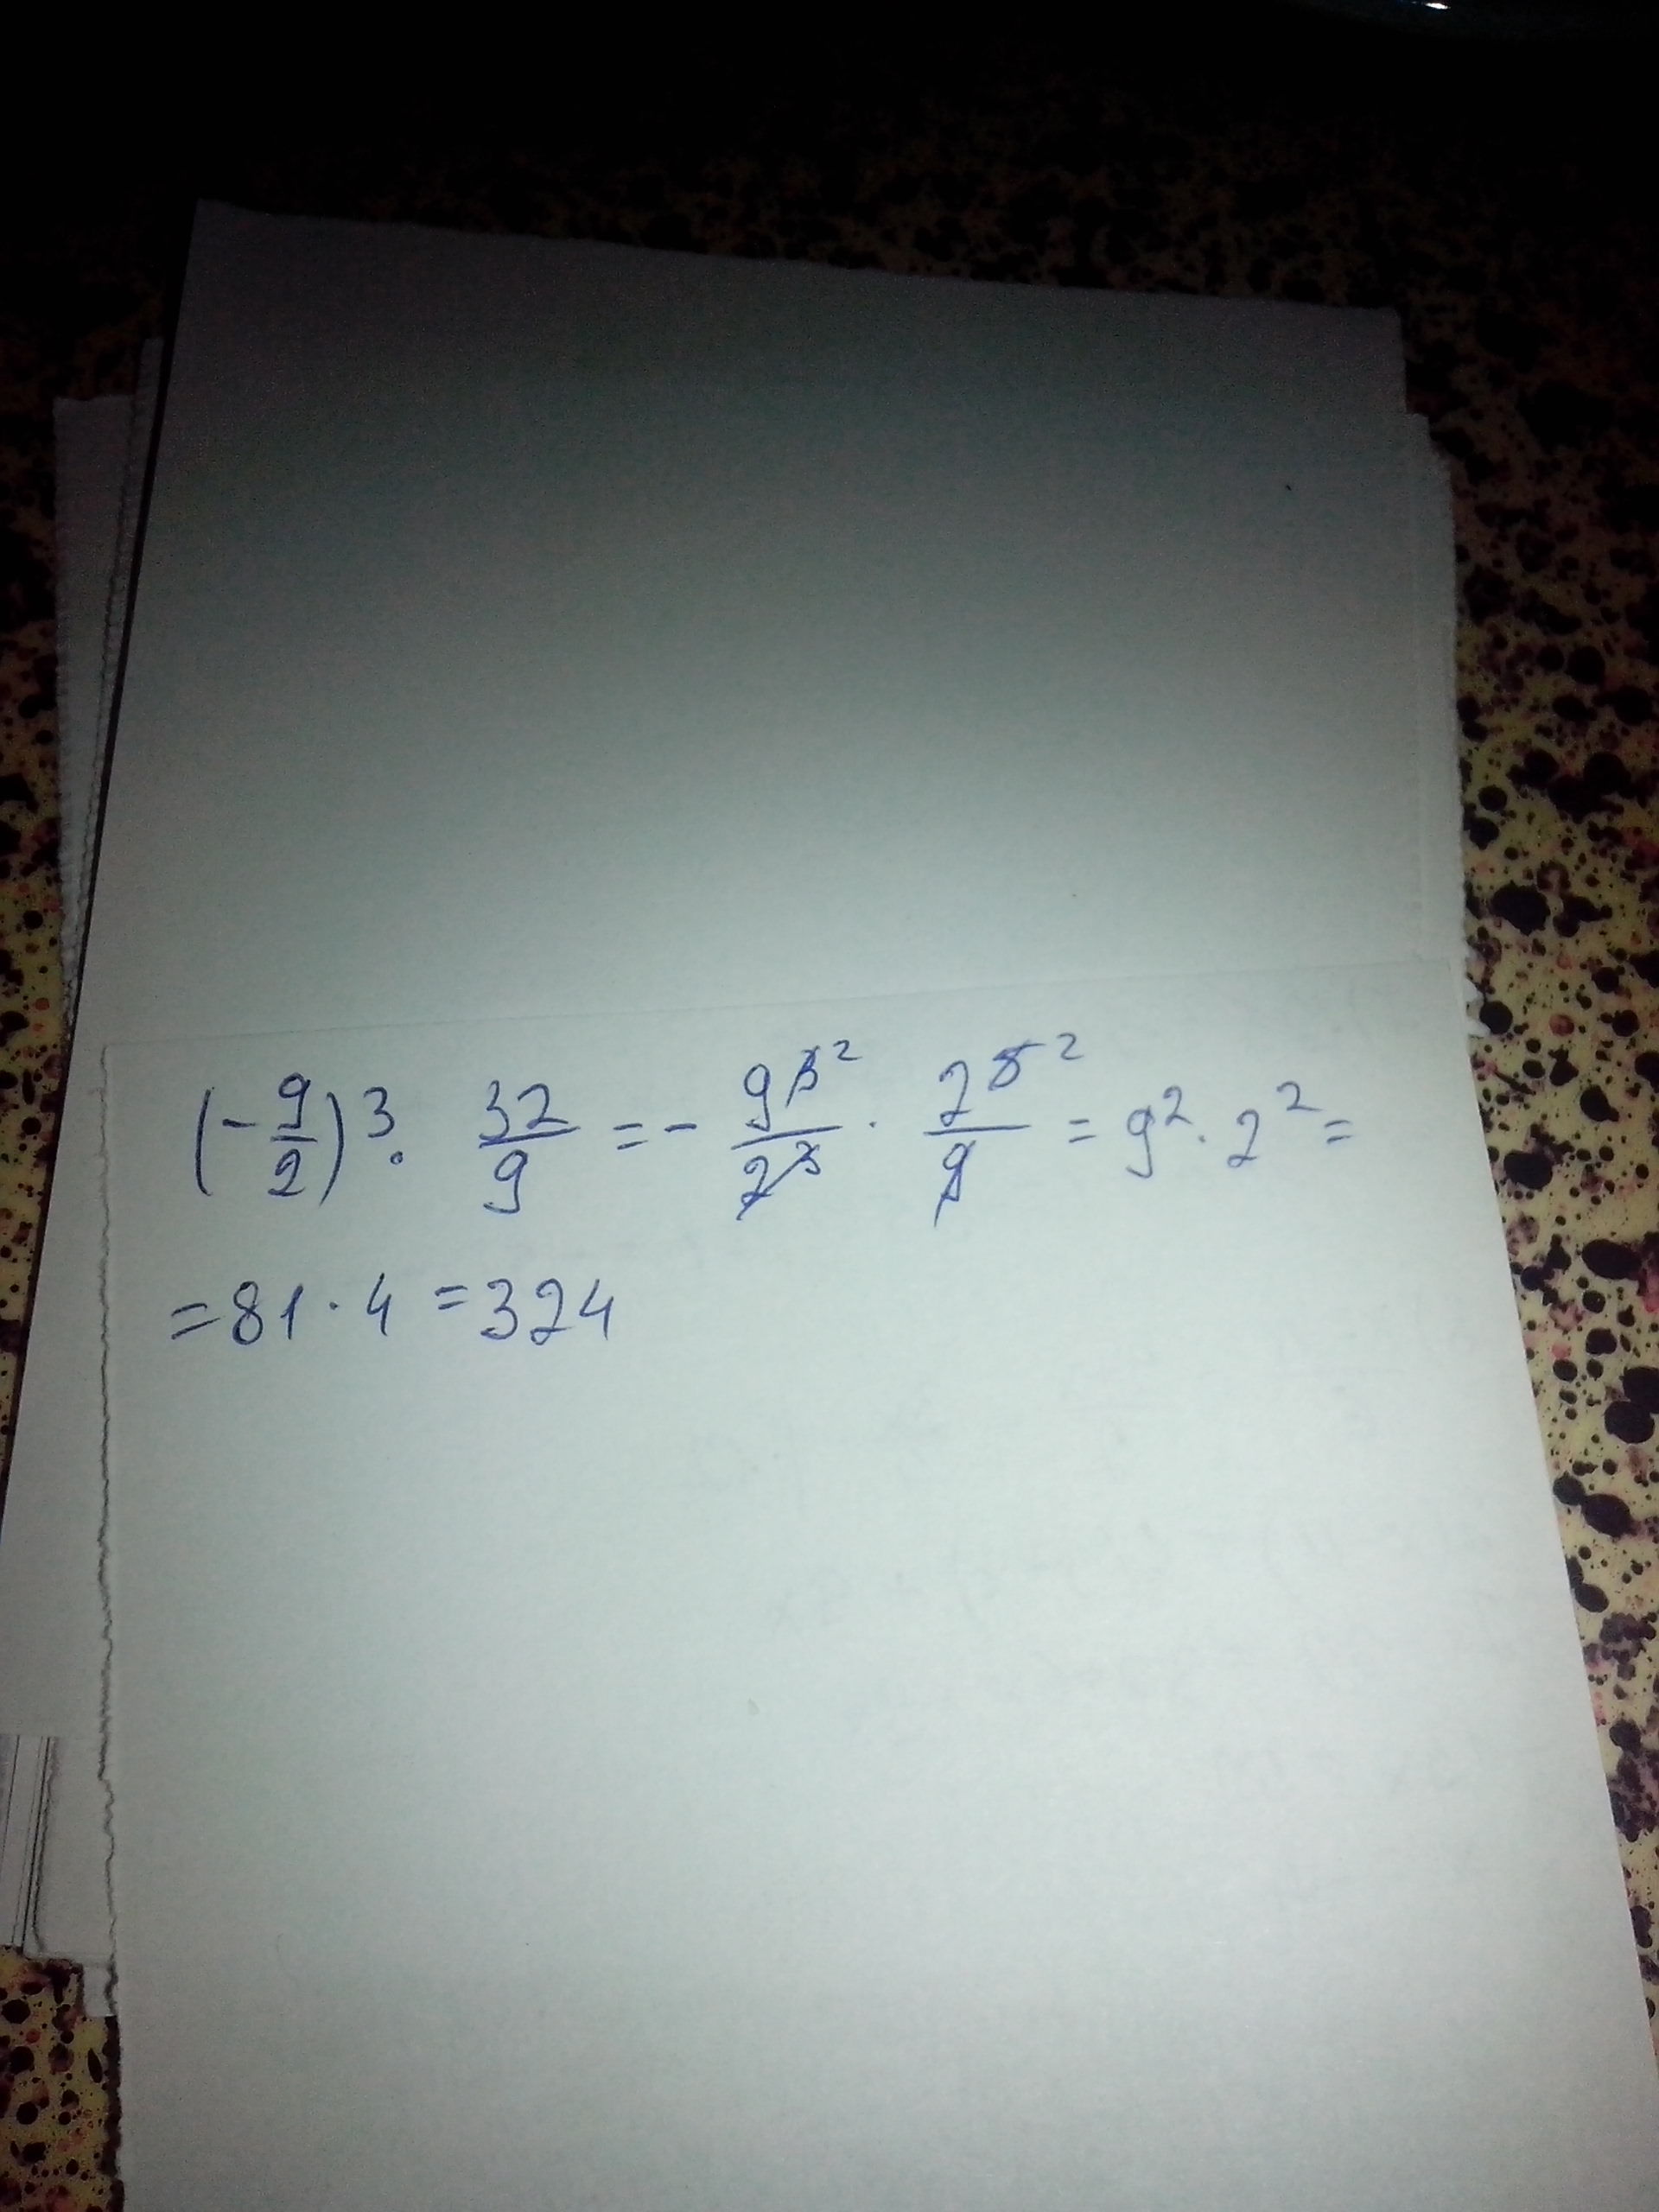 (-9/2)³ · 32/9 = - 9³²/2³ · 2⁵²/9 = 9² · 2² =
= 81 · 4 = 324